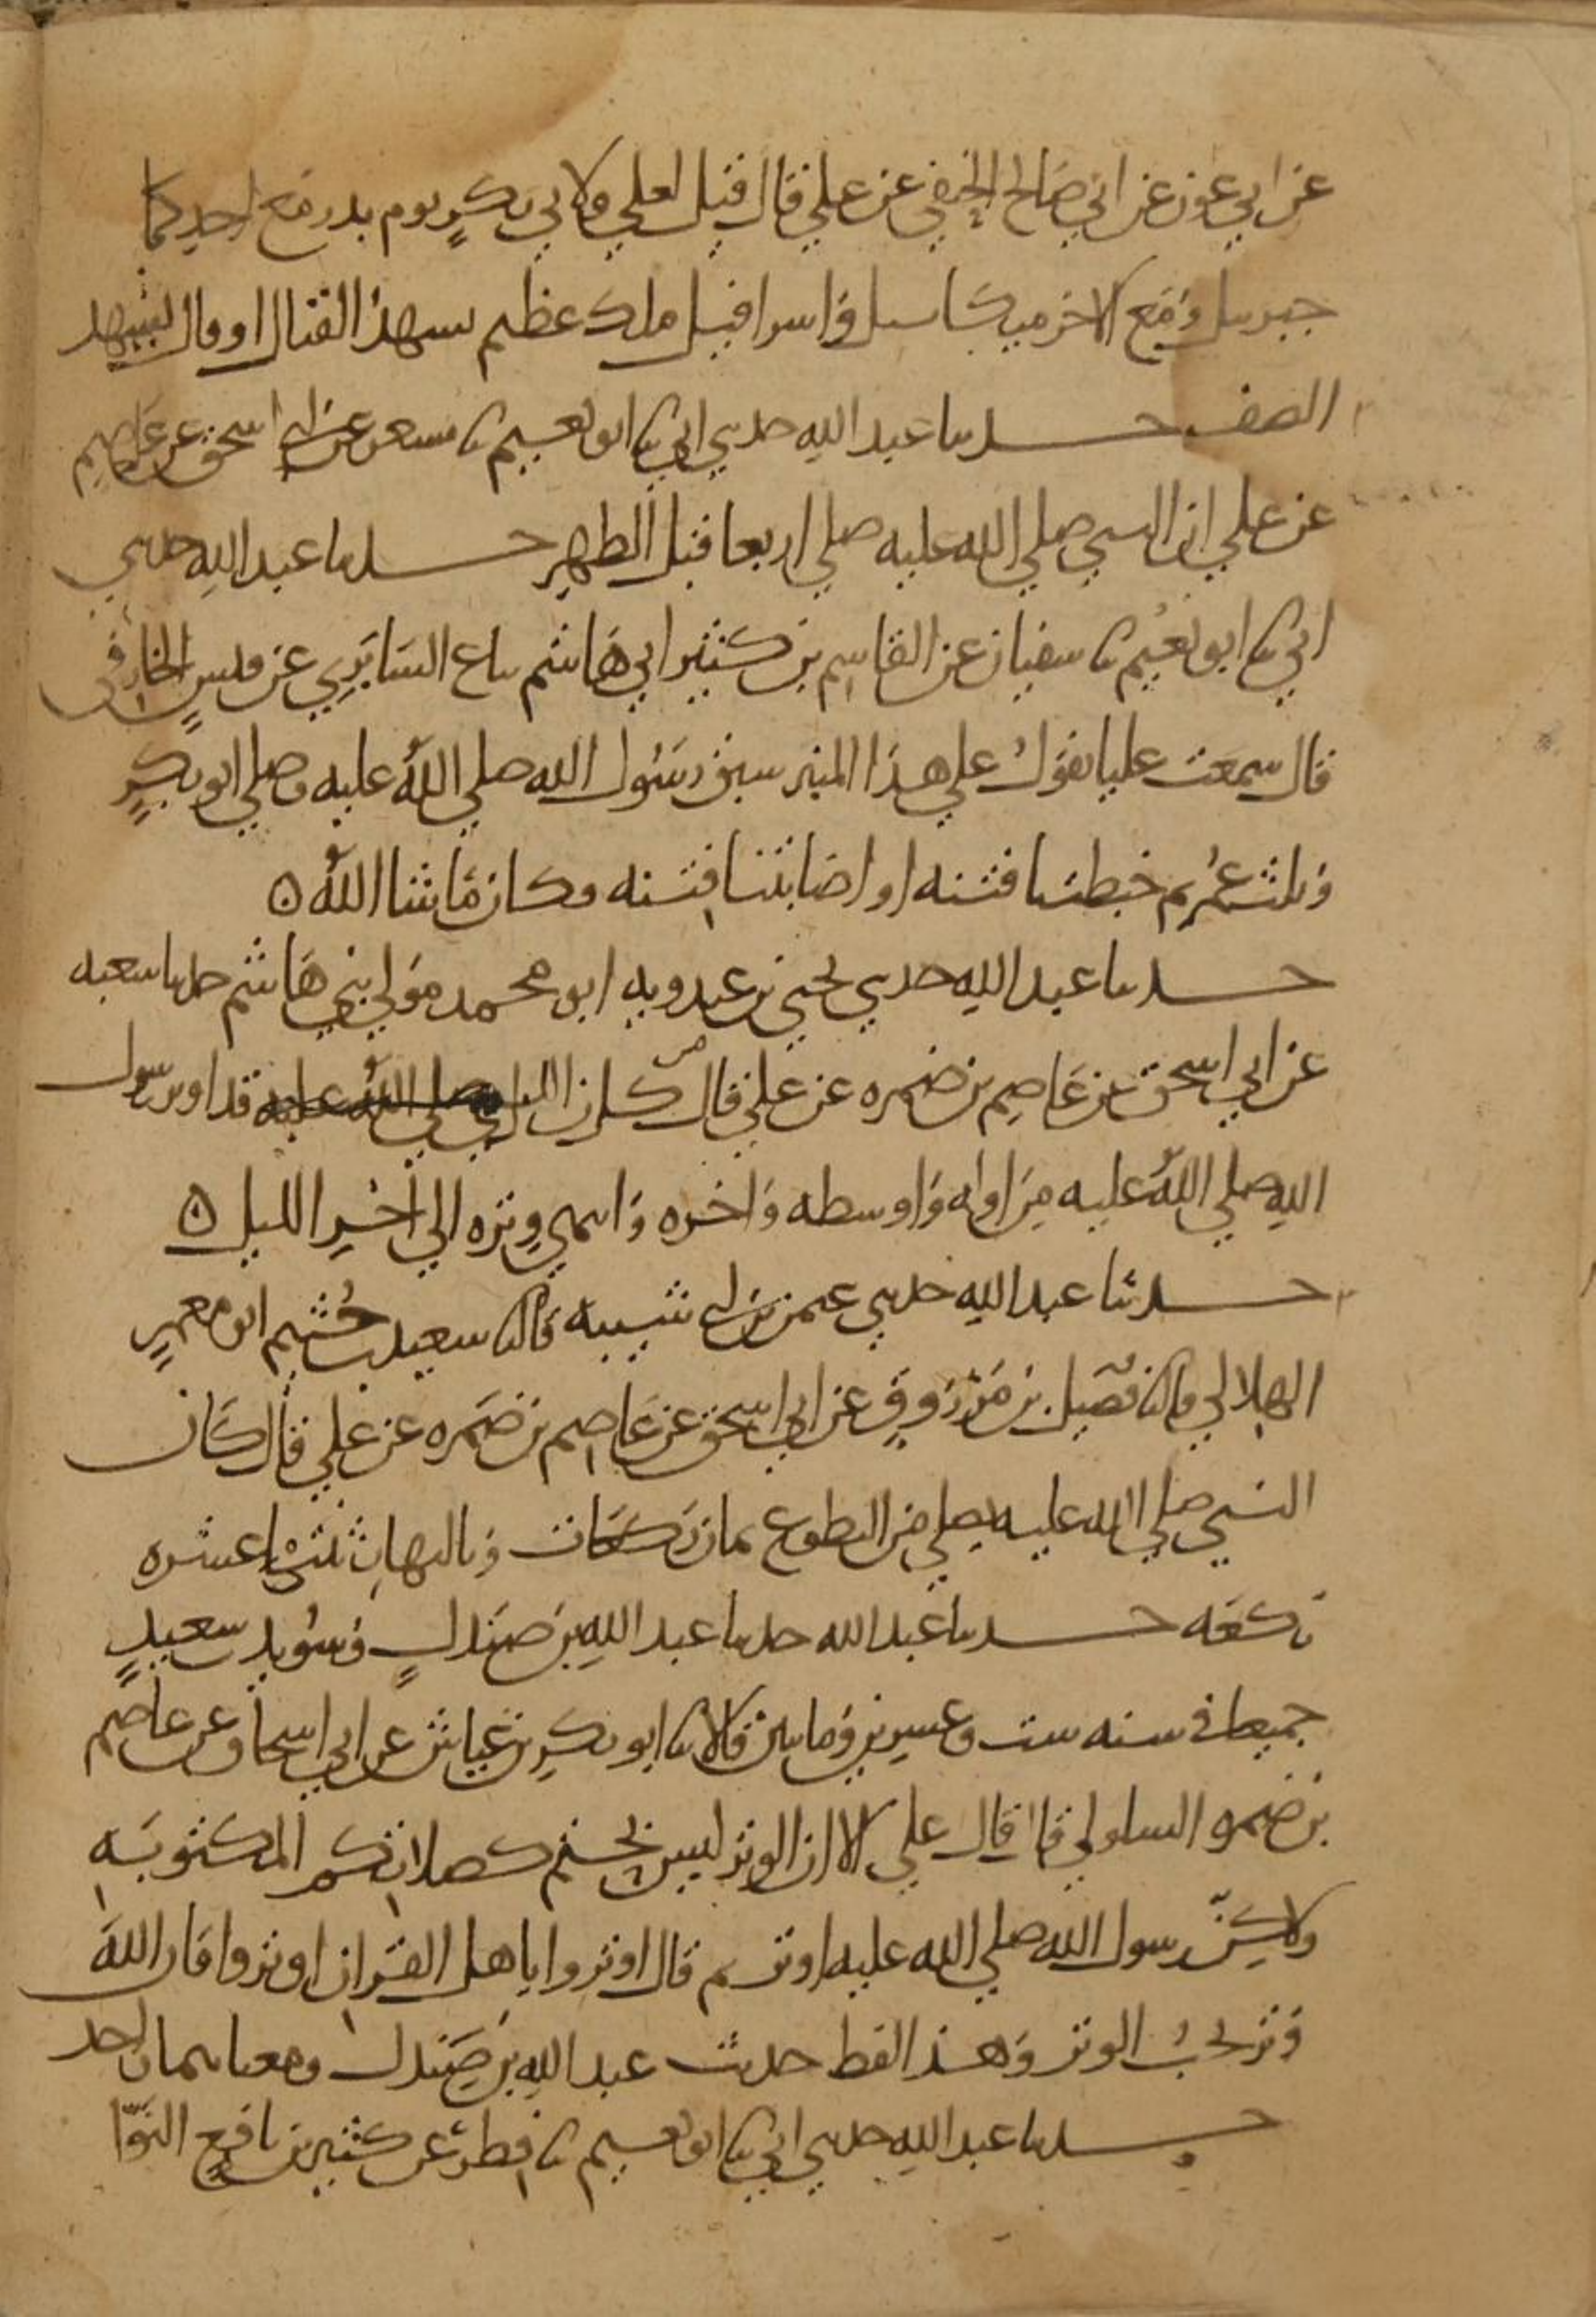 عن ابي عون عن ابي صالح الحنفي عن علي قال قيل لعلي ولابي بكر يوم بدر مع احدكما
جبريل ومع الاخر ميكاييل واسرافيل ملك عظيم يشهد القتال او قال يشهد
الصف حدثنا عبد الله حدثني ابي ثنا ابو نعيم ثنا مسعر عن ابي اسحق عن عاصم
عن علي ان النبي صلي الله عليه صلي اربعا قبل الظهر حدثنا عبد الله حدثني
ابي ثنا ابو نعيم ثنا سفيان عن القاسم بن كثير ابي هاشم بياع السابري عن قيس الخارفي
قال سمعت عليا يقول علي هذا المنبر سبق رسول الله صلي الله عليه وصلي ابو بكر
وثلث عمر ثم خبطتنا فتنه او اصابتنا فتنه وكان ما شا الله ه
حدثنا عبد الله حدثني يحيي بن عبدويه ابو محمد مولي بني هاشم حدثنا شعبه
عن ابي اسحق عن عاصم بن ضمره عن علي قال من كل الليل صلي الله عليه قد اوتر رسول
الله صلي الله عليه من اوله واوسطه واخره وانتهي وتره الي اخر الليل ه
حدثنا عبد الله حدثني عثمن بن ابي شيبه قال ثنا سعيد بن خثيم ابو معمر
الهلالي قال ثنا فضيل بن مرزوق عن ابي اسحق عن عاصم بن ضمره عن علي قال كان
النبي صلي الله عليه يصلي من التطوع ثمان ركعات وبالنهار ثنتي عشره
ركعه حدثنا عبد الله حدثنا عبد الله بن صندل وسويد بن سعيد
جميعا في سنه ست وعشرين ومايتين قالا ثنا ابو بكر بن عياش عن ابي اسحاق عن عاصم
بن ضمره السلولي قال قال علي الا ان الوتر ليس بحتم كصلاتكم المكتوبه
ولاكن رسول الله صلي الله عليه اوتر ثم قال اوتروا يا اهل القران اوتروا فان الله
وتر يحب الوتر وهذا لفظ حديث عبد الله بن صندل ومعناهما واحد
حدثنا عبد الله حدثني ابي ثنا ابو نعيم ثنا فطر عن كثير بن نافع النوا